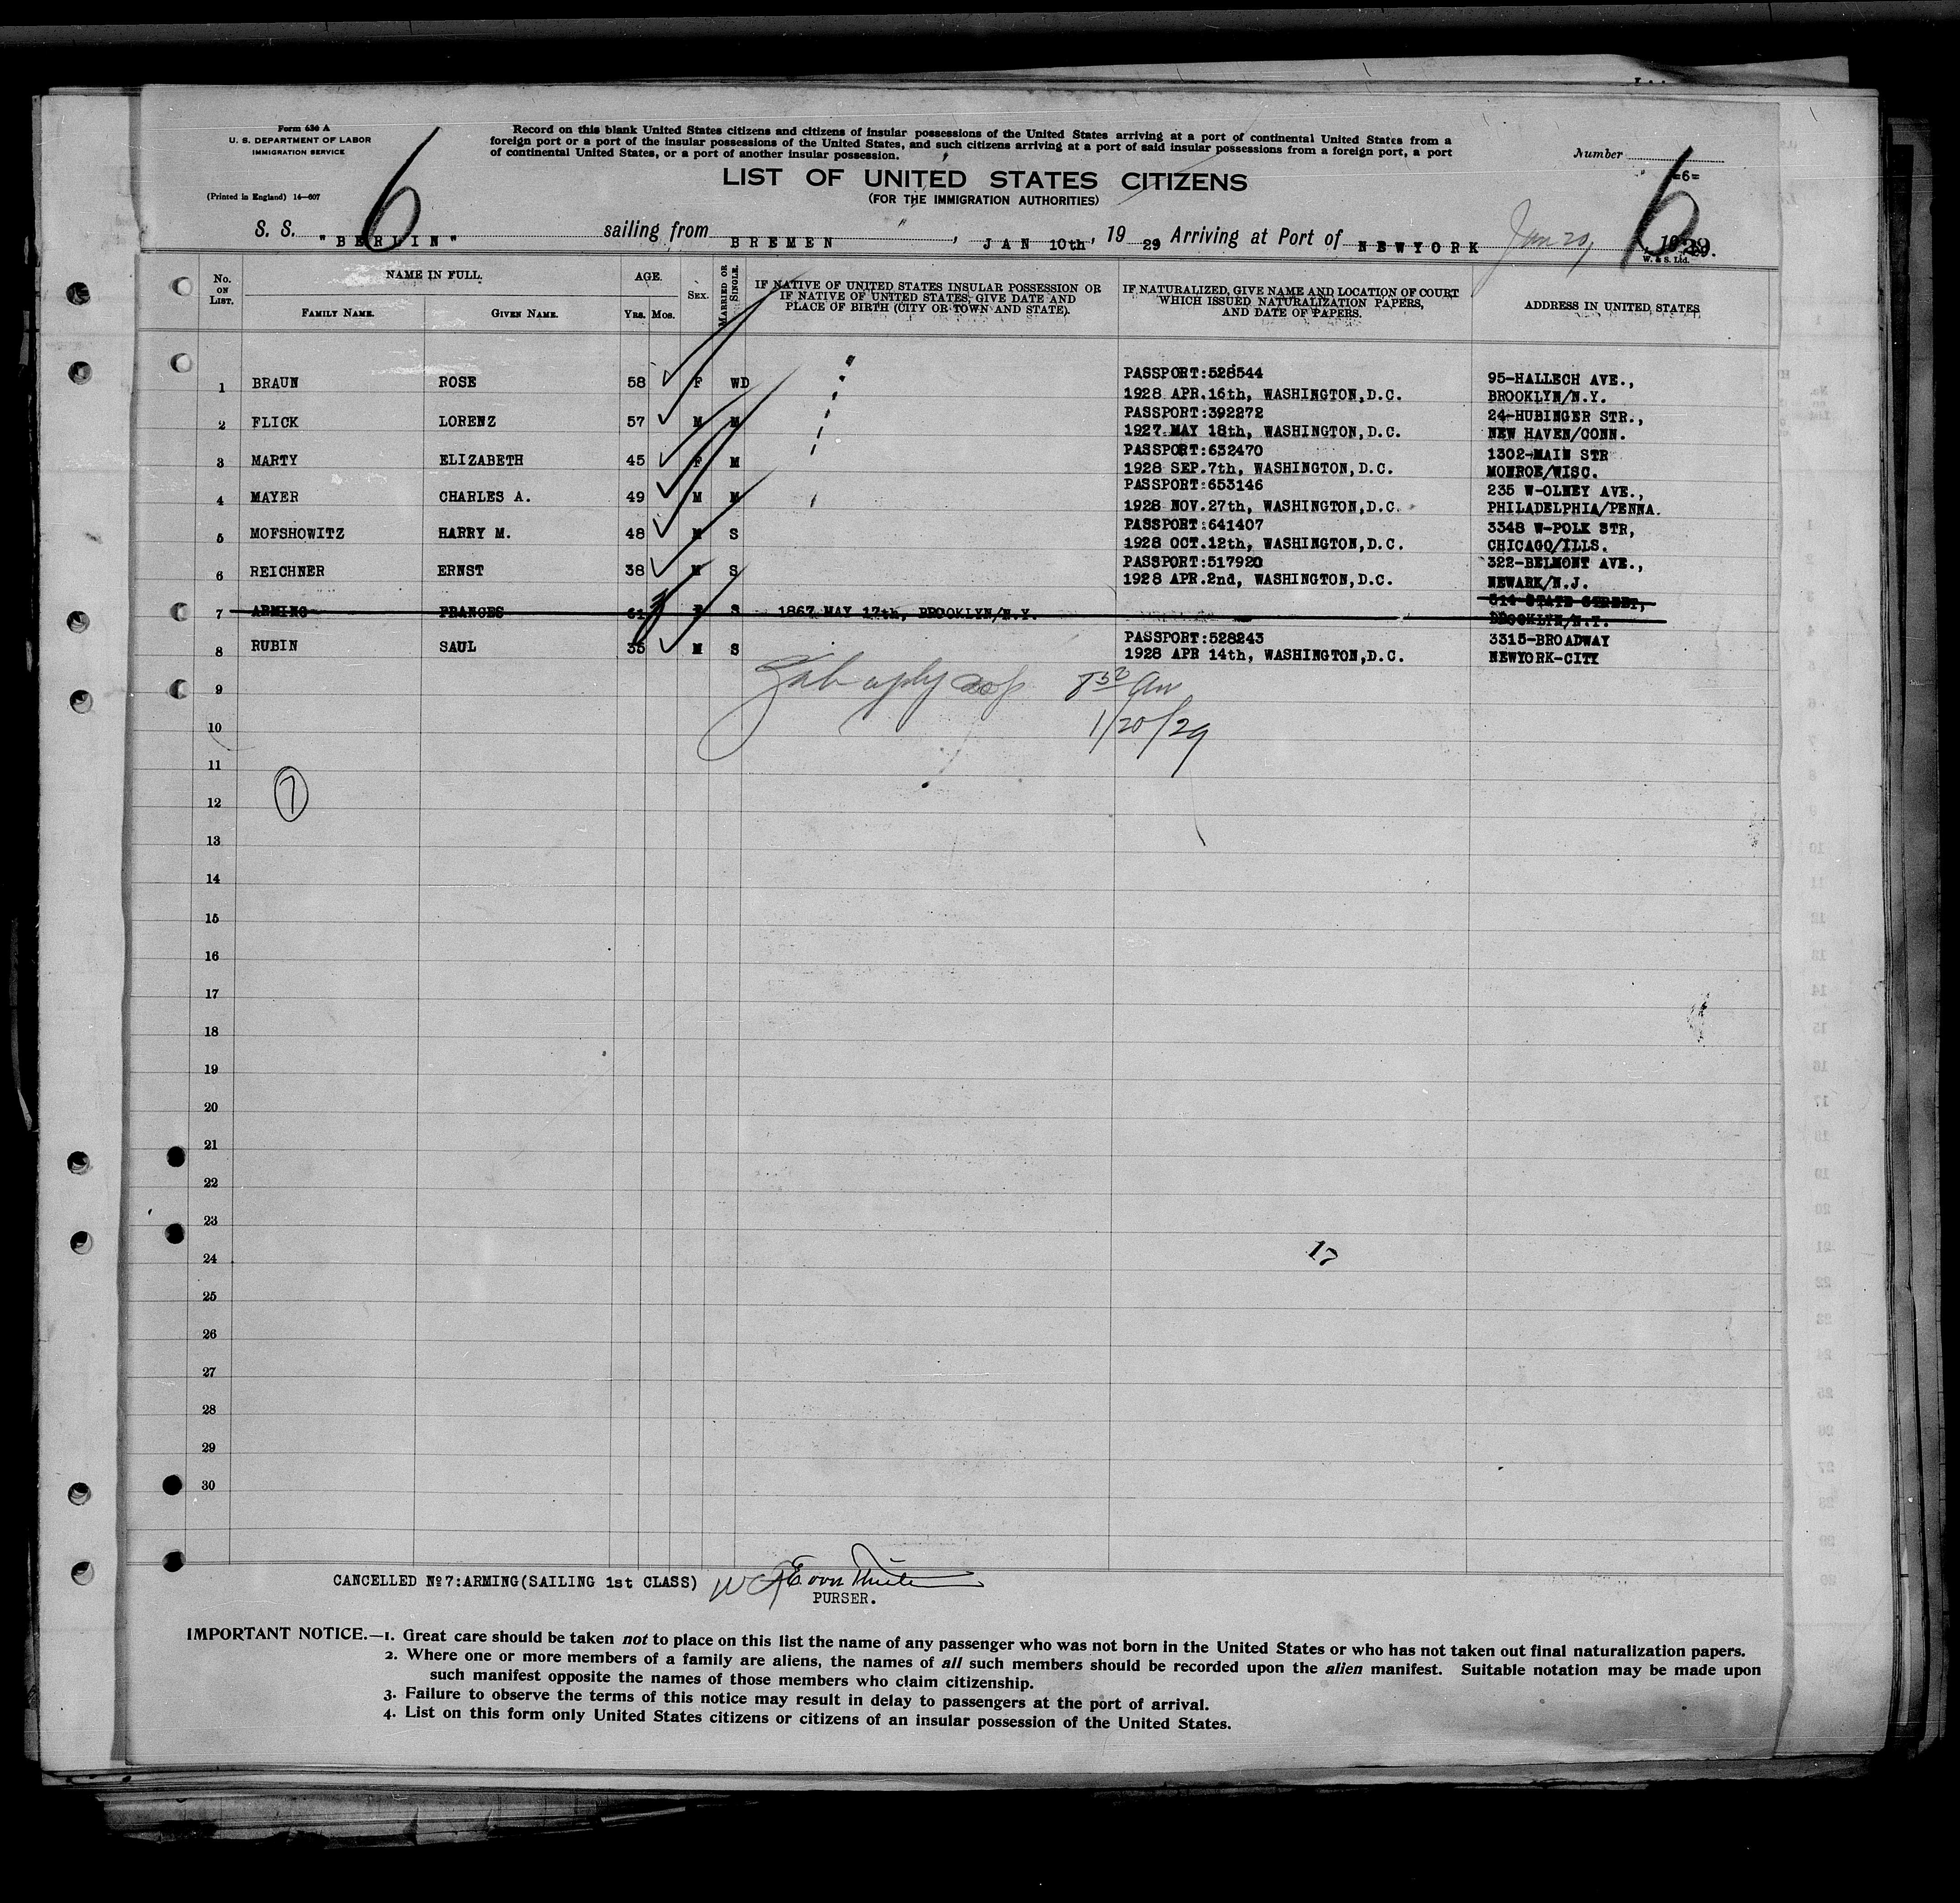 Form 630 A
U. S. DEPARTMENT OF LABOR
IMMIGRATION SERVICE
(Printed in England) 14—607
Record on this blank United States citizens and citizens of insular possessions of the United States arriving at a port of continental United States from a
foreign port or a port of the insular possessions of the United States, and such citizens arriving at a port of said insular possessions from a foreign port, a port
of continental United States, or a port of another insular possession.
Number
=6=
6
6
LIST OF UNITED STATES CITIZENS
(FOR THE IMMIGRATION AUTHORITIES)
S. S. "BERLIN" sailing from BREMEN, JAN 10th, 1929 Arriving at Port of NEWYORK Jan 20, 1929.
W. & S. Ltd.
No. ON LIST.
NAME IN FULL.
FAMILY NAME.
GIVEN NAME.
AGE.
Yrs. Mos.
SEX.
MARRIED OR SINGLE.
IF NATIVE OF UNITED STATES INSULAR POSSESSION OR
IF NATIVE OF UNITED STATES, GIVE DATE AND
PLACE OF BIRTH (CITY OR TOWN AND STATE).
IF NATURALIZED, GIVE NAME AND LOCATION OF COURT
WHICH ISSUED NATURALIZATION PAPERS,
AND DATE OF PAPERS.
ADDRESS IN UNITED STATES
1 BRAUN ROSE 58 F WD PASSPORT:528544 95-HALLECH AVE.,
1928 APR.16th, WASHINGTON,D.C. BROOKLYN/N.Y.
2 FLICK LORENZ 57 M M PASSPORT:392272 24-HUBINGER STR.,
1927 MAY 18th, WASHINGTON,D.C. NEW HAVEN/CONN.
3 MARTY ELIZABETH 45 F M PASSPORT:632470 1302-MAIN STR
1928 SEP.7th, WASHINGTON,D.C. MONROE/WISC.
4 MAYER CHARLES A. 49 M M PASSPORT:653146 235 W-OLNEY AVE.,
1928 NOV.27th, WASHINGTON,D.C. PHILADELPHIA/PENNA.
5 MOFSHOWITZ HARRY M. 48 M S PASSPORT:641407 3348 W-POLK STR,
1928 OCT.12th, WASHINGTON,D.C. CHICAGO/ILLS.
6 REICHNER ERNST 38 M S PASSPORT:517920 322-BELMONT AVE.,
1928 APR.2nd, WASHINGTON,D.C. NEWARK/N.J.
7 ARMING FRANCES 61 F S 1867 MAY 17th, BROOKLYN/N.Y. 514-STATE STREET,
BROOKLYN/N.Y.
8 RUBIN SAUL 35 M S PASSPORT:528243 3315-BROADWAY
1928 APR 14th, WASHINGTON,D.C. NEWYORK-CITY
9
10
1/20/29
11
12
7
13
14
15
16
17
18
19
20
21
22
23
24
17
25
26
27
28
29
30
CANCELLED №7:ARMING(SAILING 1st CLASS)
PURSER.
IMPORTANT NOTICE.—1. Great care should be taken not to place on this list the name of any passenger who was not born in the United States or who has not taken out final naturalization papers.
2. Where one or more members of a family are aliens, the names of all such members should be recorded upon the alien manifest. Suitable notation may be made upon
such manifest opposite the names of those members who claim citizenship.
3. Failure to observe the terms of this notice may result in delay to passengers at the port of arrival.
4. List on this form only United States citizens or citizens of an insular possession of the United States.